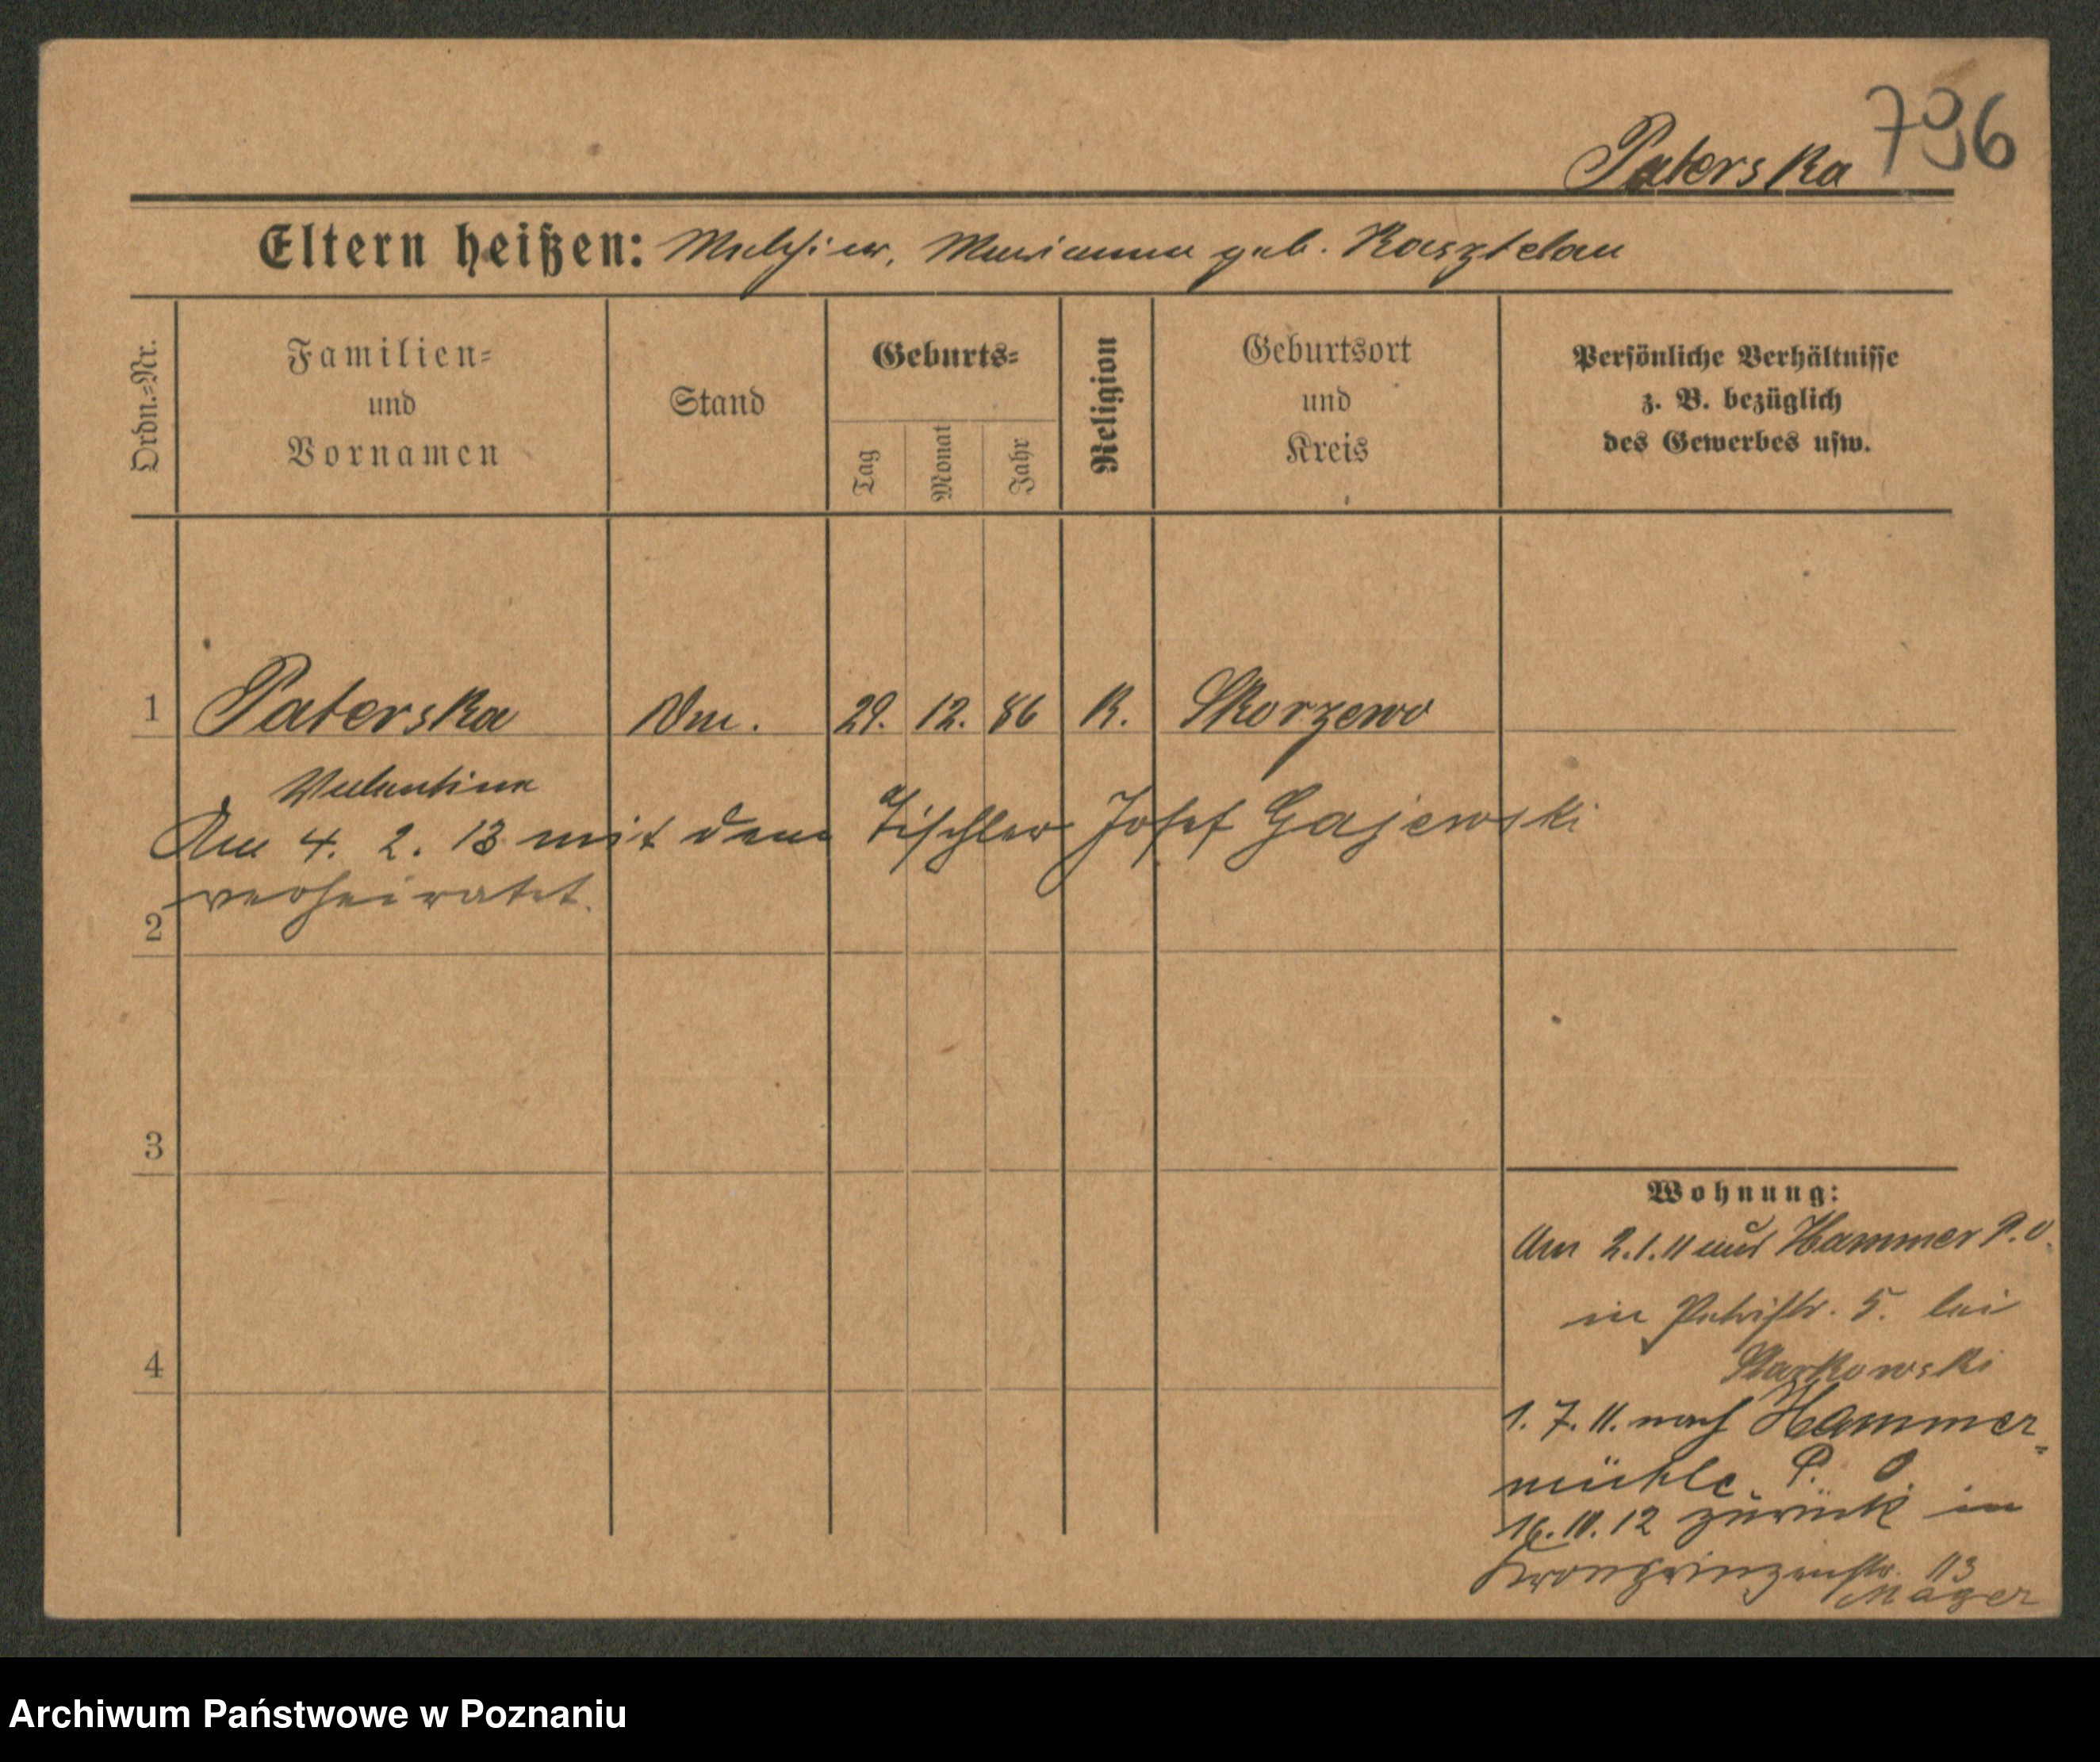 796
Paterska
Eltern heißen: Melchior, Marianna geb. Kasztelan
Ordn.=Nr.
Familien=
und
Vornamen
Stand
Geburts=
Tag
Monat
Jahr
Religion
Geburtsort
und
Kreis
Persönliche Verhältnisse
z. B. bezüglich
des Gewerbes usw.
1 Paterska 29. 12. 86 K. Skorzewo
Valentina
Am 4. 2. 13 mit dem Tischler Josef Gajewski
verheiratet.
2
3
4
Wohnung:
Am 2.1.11 aus Hammer P. O.
in Petristr. 5. bei
Starkowski
1. 7. 11. nach Hammer=
mühle P. O.
16. 10. 12 zurück in
Kronprinzenstr. 113
Mager
Archiwum Państwowe w Poznaniu